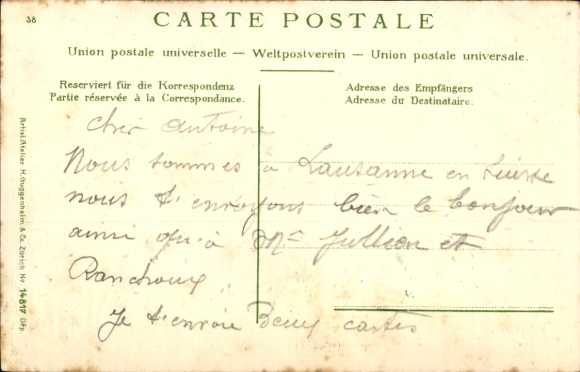 38
CARTE POSTALE
Union postale universelle — Weltpostverein — Union postale universale.
Reserviert für die Korrespondenz
Partie réservée à la Correspondance.
Adresse des Empfängers
Adresse du Destinataire.
Artist. Atelier H. Guggenheim & Co. Zürich № 14817 Dép.
cher Antoine
Nous sommes a Lausanne en Suisse
nous t'envoyons bien le bonjour
ainsi qu'à Mr Jullien et
Ranchoux
Je t'envoie Deux cartes